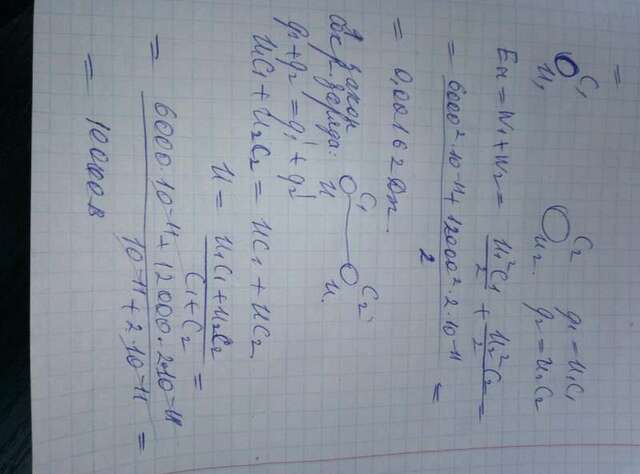 =
C₁ C₂ q₁ = U₁C₁
U₁ U₂ q₂ = U₂C₂
Eп = W₁ + W₂ = U₁²C₁/2 + U₂²C₂/2 =
= (6000² · 10⁻¹¹ + 12000² · 2 · 10⁻¹¹)/2 =
= 0,00162 Дж.
закон
сохр. заряда: C₁ C₂'
q₁ + q₂ = q₁' + q₂' U U.
U₁C₁ + U₂C₂ = UC₁ + UC₂
U = (U₁C₁ + U₂C₂)/(C₁ + C₂) =
= (6000 · 10⁻¹¹ + 12000 · 2 · 10⁻¹¹)/(10⁻¹¹ + 2 · 10⁻¹¹) =
= 10000 В